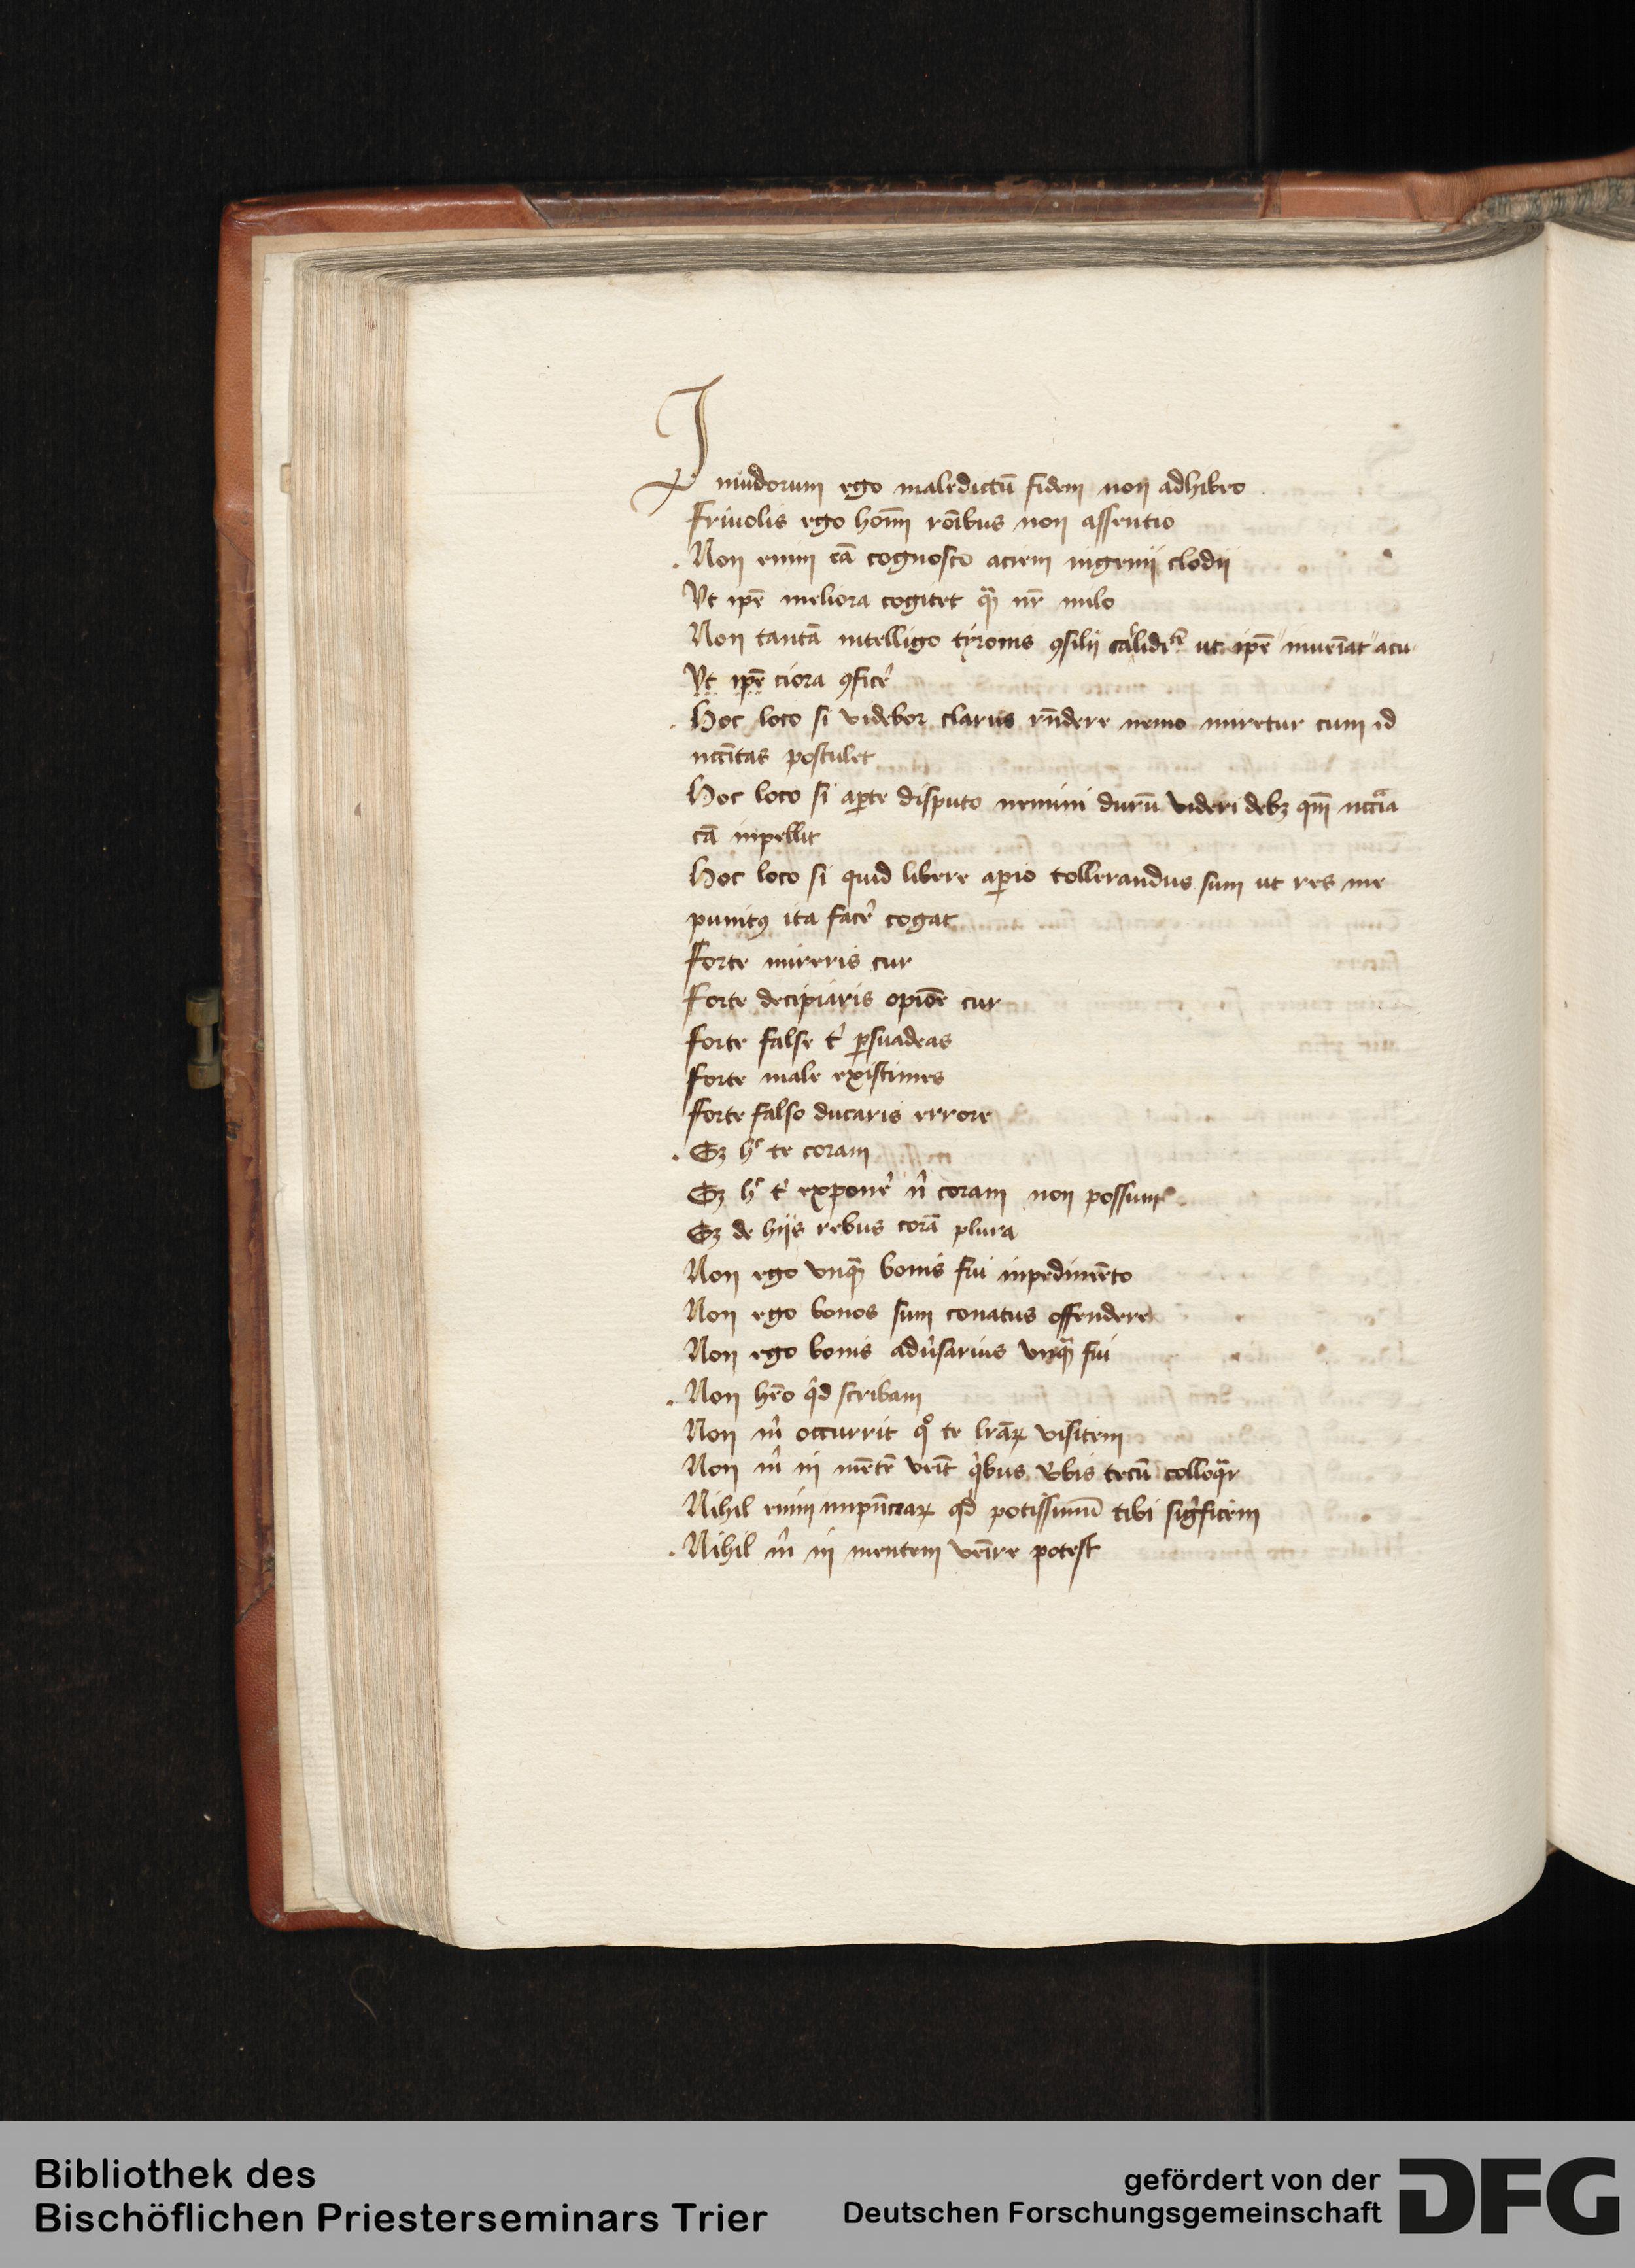 Inuidorum ego maledictū fidem non adhibeo
Friuolis ego homī rōibus non assentio
Non enim eā cognosco aciem ingenij clodij
Vt ipē meliora cogitet qꝫ nr̄ milo
Non tantā intelligo tyronis ꝯsilij calidᵗᵉ̄ ut ipē inueīat acu
Vt ipē ciora ꝯficeˀ
Hoc loco si videbor clarius rn̄dere nemo miretur cum id
nccītas postulet
Hoc loco si aꝑte disputo nemini durū videri debꝫ qm̄ nccīa
cā inpellit
Hoc loco si quid libere aꝑio tollerandus sum ut res me
punitꝰ ita faceˀ cogat
Forte mireris cur
Forte decipiaris opiōe cur
Forte false tⁱ ꝑsuadeas
Forte male existimes
Forte falso ducaris errore
Sꝫ hͨ te coram
Sꝫ hͨ tⁱ exponeˀ nⁱ coram non possum
Sꝫ de hijs rebus corā plura
Non ego vnqꝫ bonis fui inpedimēto
Non ego bonos sum conatus offendere
Non ego bonis adūsarius vnqꝫ fui
Non hēo qⁱd scribam
Non mⁱ occurrit qͦ te lrāꝝ visitem
Non mⁱ in mētē venīt qⁱbus v̄bis tecū colloqᵃr
Nihil enim qd potissimū tibi sigⁱficem
Nihil mⁱ in mentem venīre potest
Bibliothek des
Bischöflichen Priesterseminars Trier
gefördert von der
Deutschen Forschungsgemeinschaft
DFG